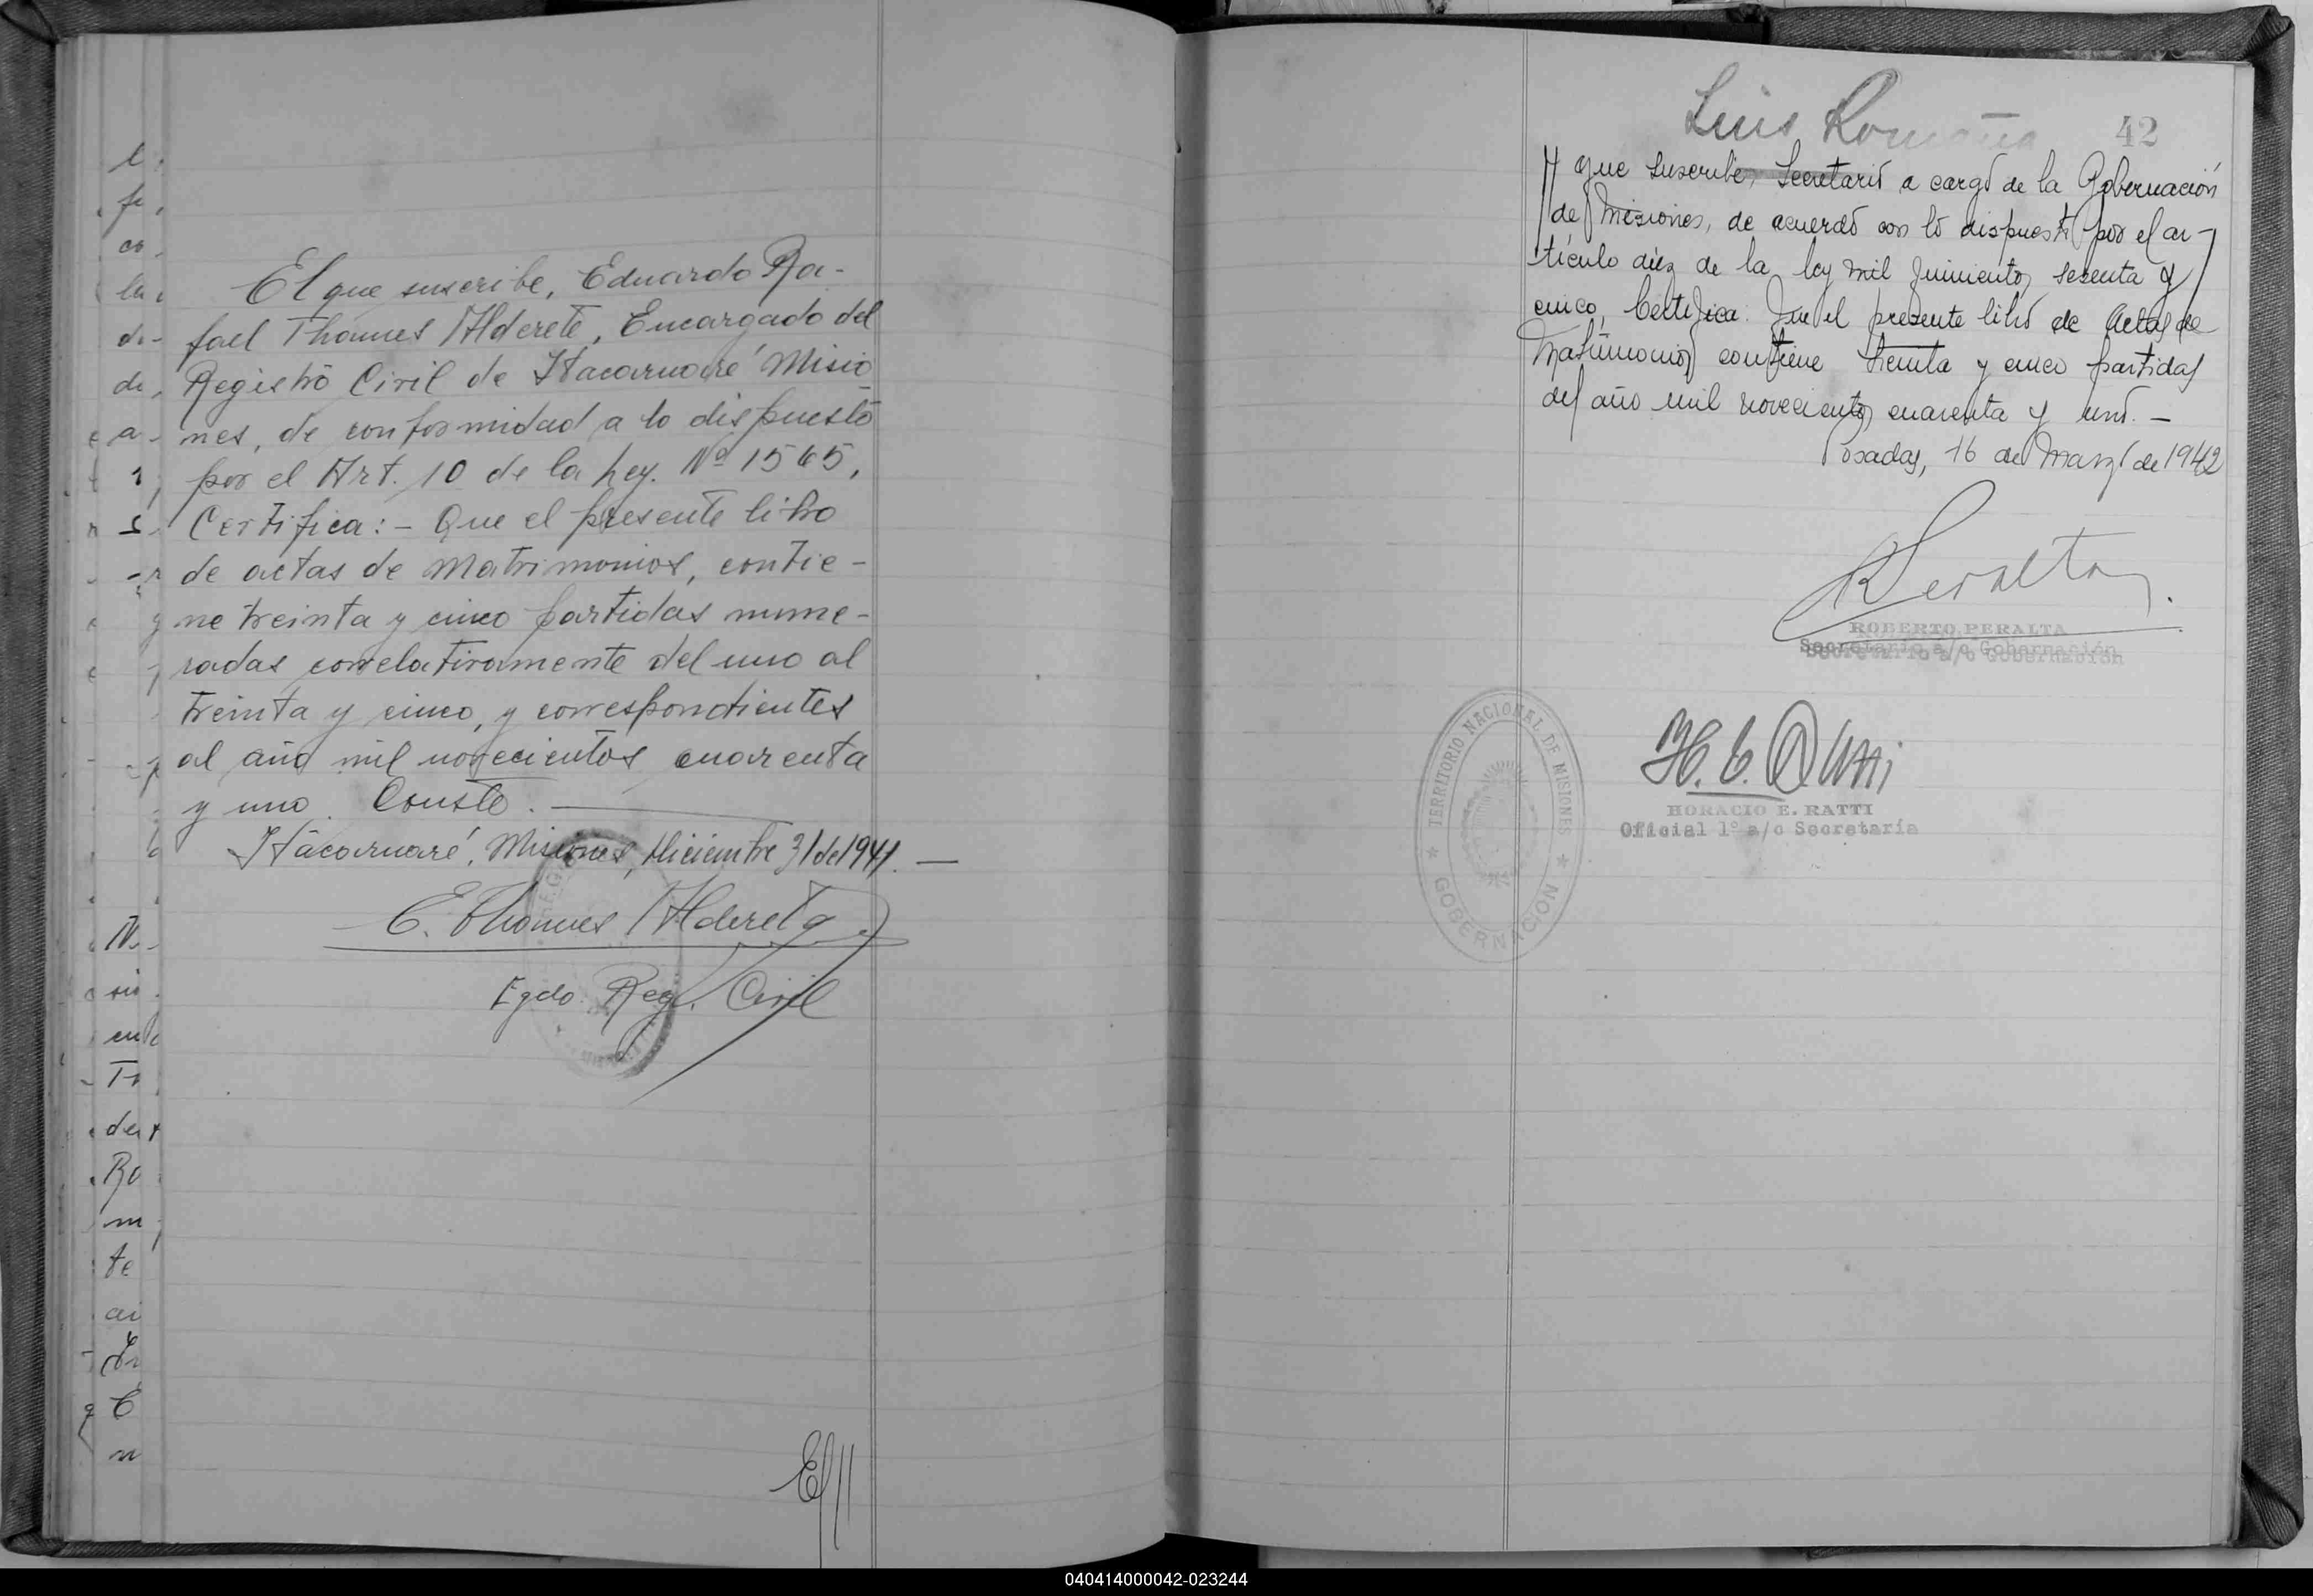 El que suscribe, Eduardo Ra-
fael Thames Alderete, Encargado del
Registro Civil de Itacaruaré Misio
nes, de conformidad a lo dispuesto
por el Art. 10 de la Ley. Nº 1565,
Certifica:- Que el presente libro
de actas de Matrimonios, contie-
ne treinta y cinco partidas nume-
radas correlativamente del uno al
treinta y cinco, y correspondientes
al año mil novecientos cuarenta
y uno. Conste.
Itacaruaré, Misiones, Diciembre 31 de 1941.
E. Thames Alderete
Egdo. Reg. Civil
El//
Luis Romaña
42
// que suscribe, Secretario a cargo de la Gobernación
de Misiones, de acuerdo con lo dispuesto por el ar-
tículo diez de la ley mil quinientos sesenta y
cinco, Certifica: Que el presente libro de Actas de
Matrimonios contiene treinta y cinco partidas
del año mil novecientos cuarenta y uno. -
Posadas, 16 de Marzo de 1942
RPeralta
ROBERTO PERALTA
Secretario a/c Gobernación
TERRITORIO NACIONAL DE MISIONES
GOBERNACION
H. E. Ratti
HORACIO E. RATTI
Oficial 1º a/c Secretaría
040414000042-023244